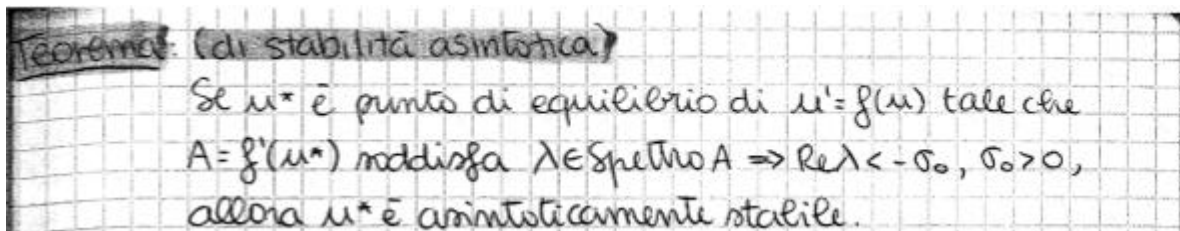 Teorema: (di stabilità asintotica)
Se u* è punto di equilibrio di u'=f(u) tale che
A=f'(u*) soddisfa λ∈Spettro A ⇒ Reλ<-σ₀, σ₀>0,
allora u* è asintoticamente stabile.